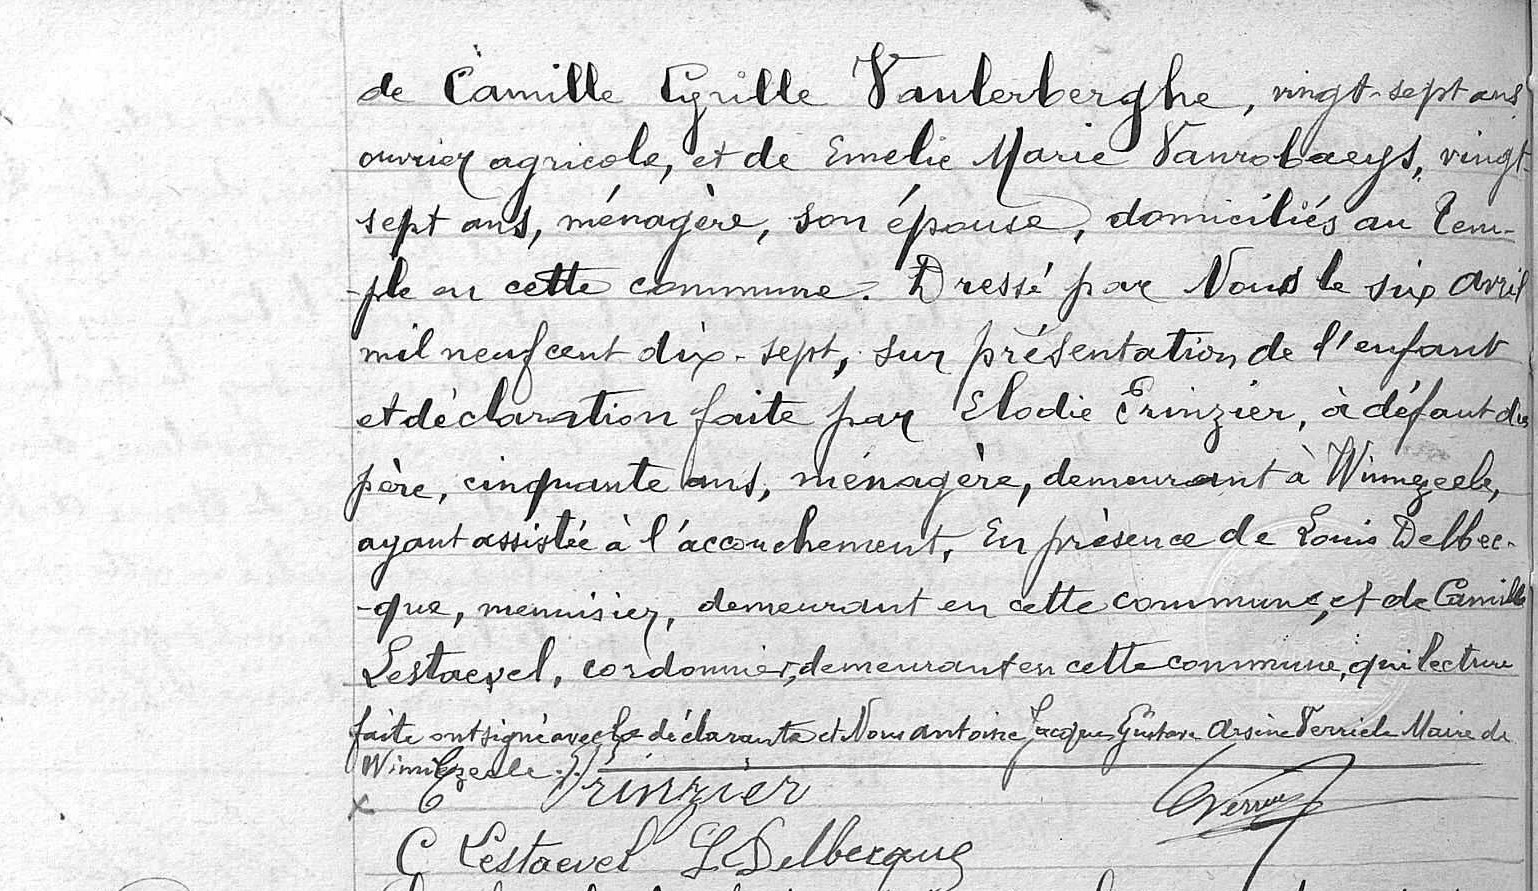 de Camille Cyrille Vanlerberghe, vingt-sept ans
ouvrier agricole, et de Emelie Marie Vanrobaeys, vingt-
sept ans, ménagère, son épouse, domiciliés au Tem-
-ple en cette commune. Dressé par Nous le six avril
mil neuf cent dix-sept, sur présentation de l'enfant
et déclaration faite par Elodie Prinzier, à défaut du
père, cinquante ans, ménagère, demeurant à Winnezeele,
ayant assistée à l'accouchement. En présence de Louis Delbec-
-que, menuisier, demeurant en cette commune, et de Camille
Lestaevel, cordonnier, demeurant en cette commune, qui lecture
faite ont signé avec la déclarante et Nous Antoine Jacque Gustave Arsène Verriele Maire de
Winnezeele ./.
E Prinzier
C Lestaevel L Delbecque